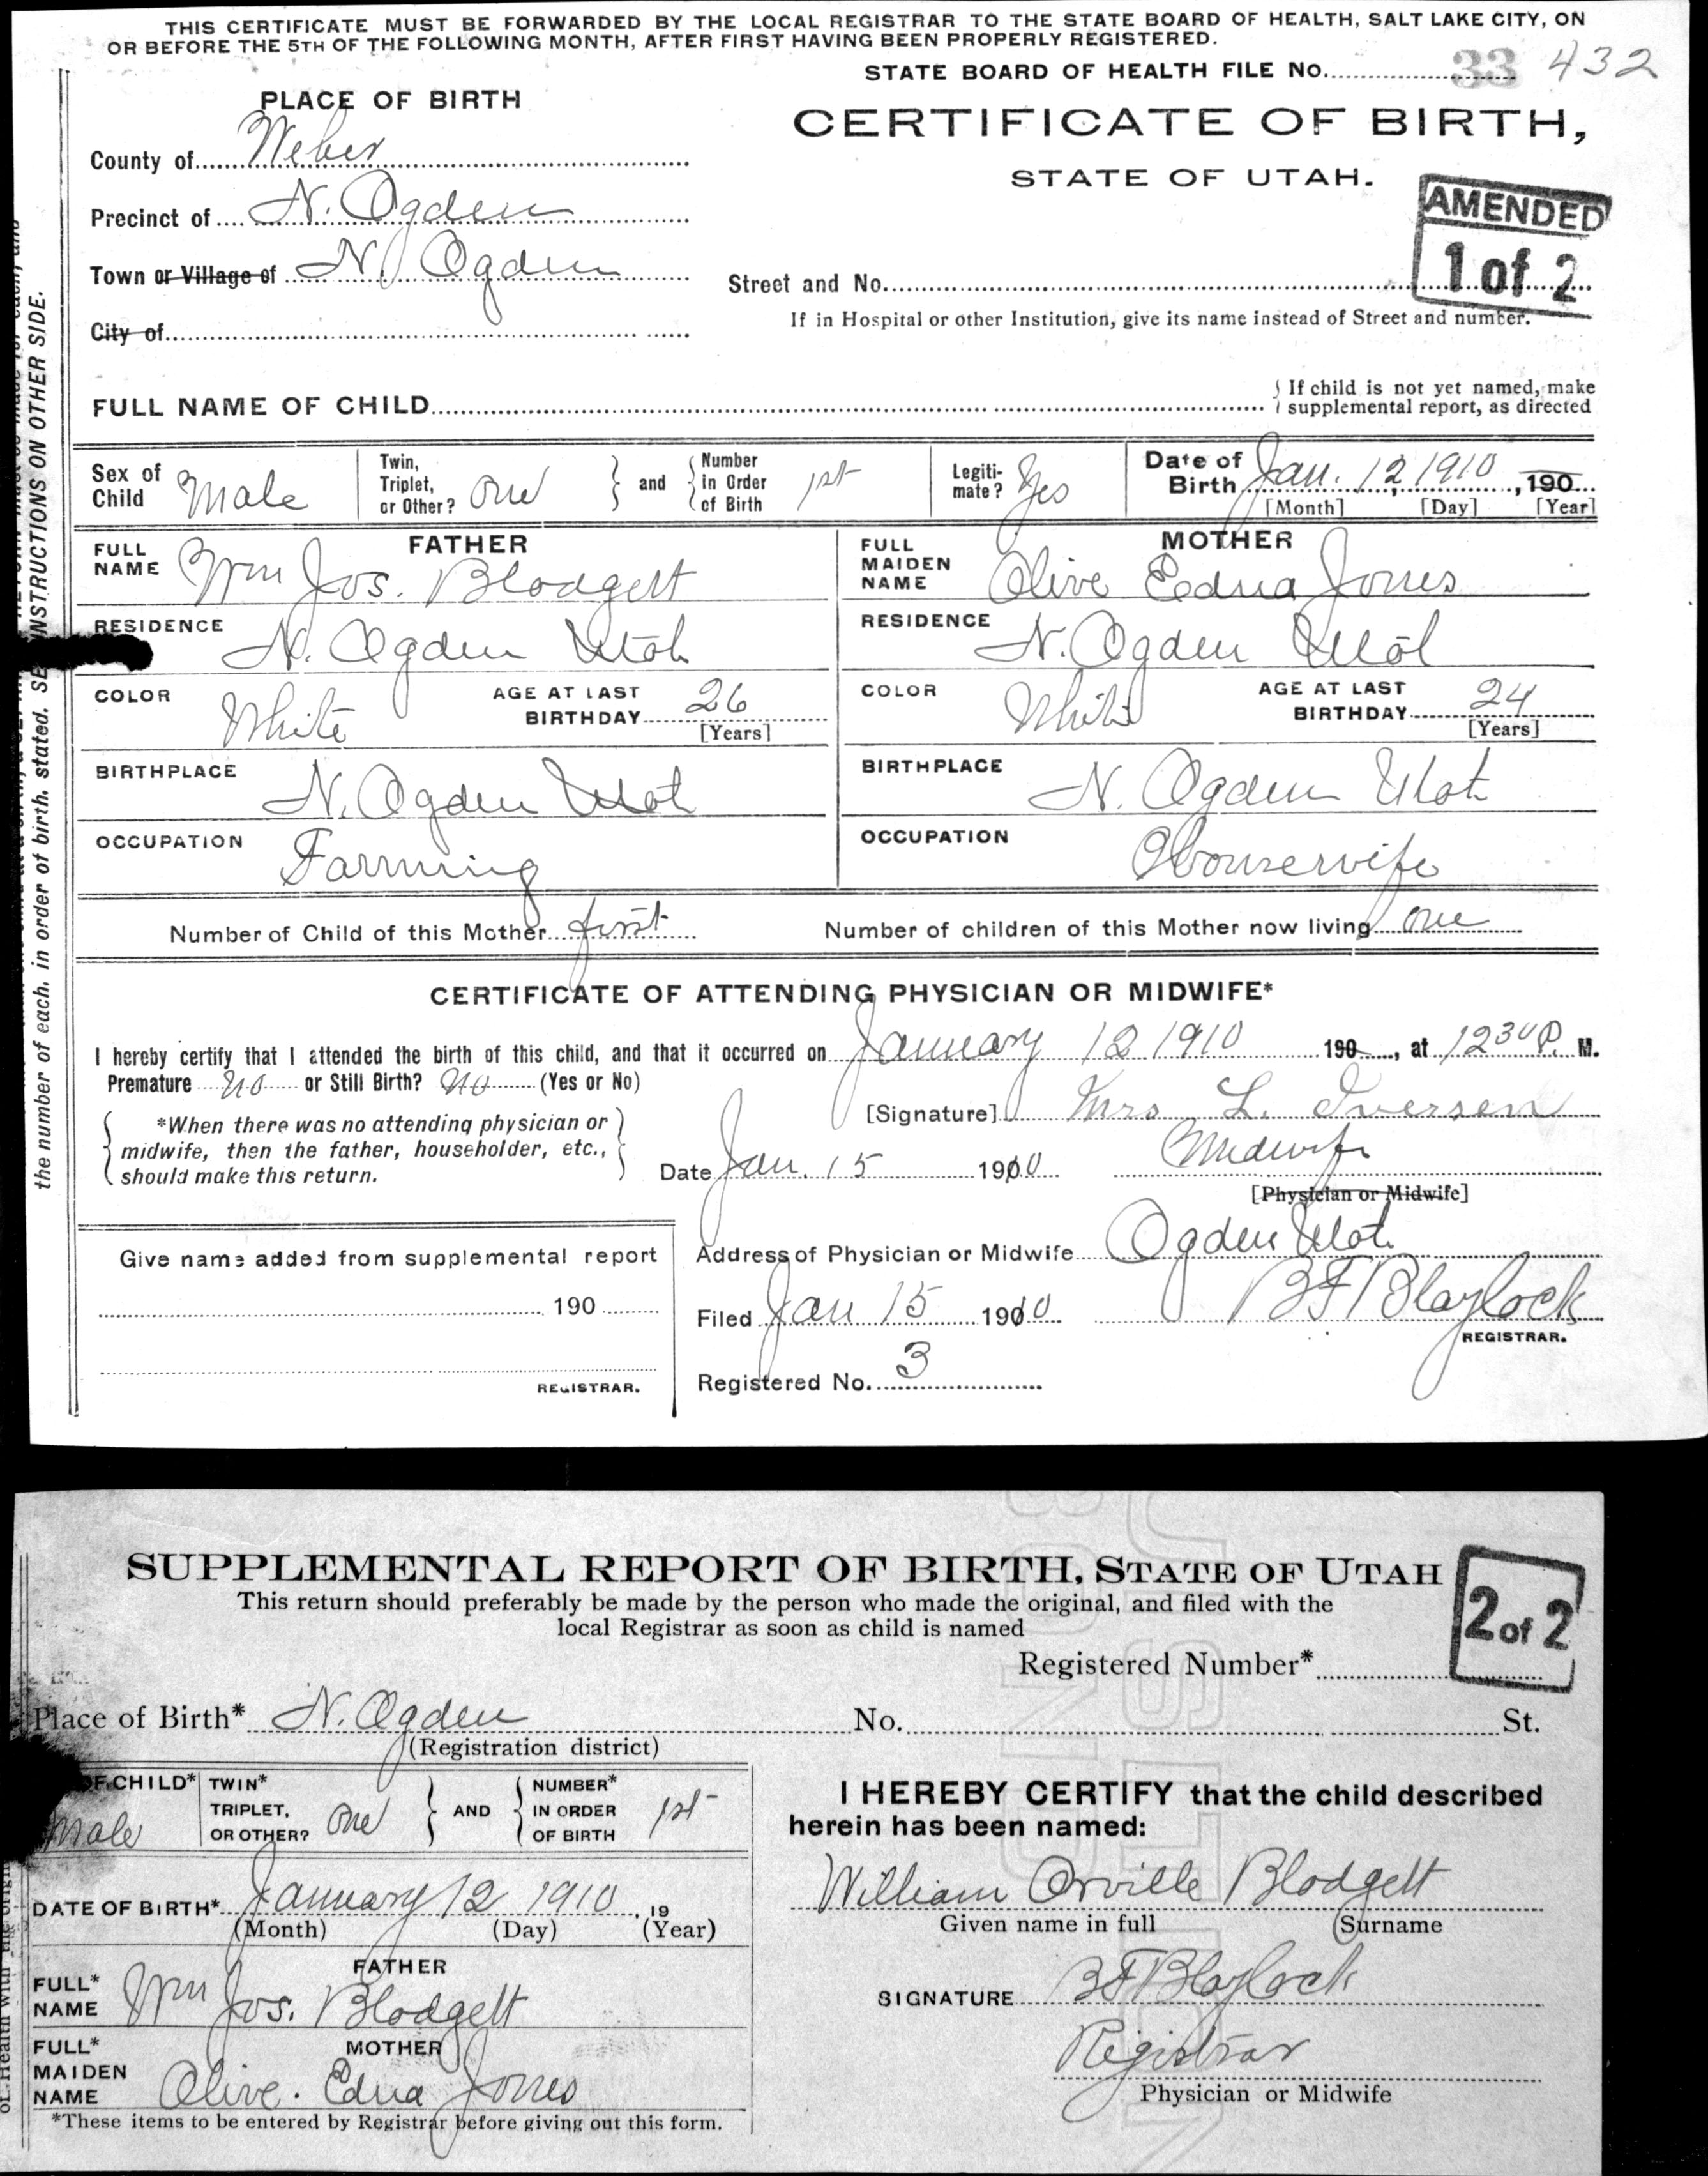 THIS CERTIFICATE MUST BE FORWARDED BY THE LOCAL REGISTRAR TO THE STATE BOARD OF HEALTH, SALT LAKE CITY, ON
OR BEFORE THE 5TH OF THE FOLLOWING MONTH, AFTER FIRST HAVING BEEN PROPERLY REGISTERED.
STATE BOARD OF HEALTH FILE No. 33 432
PLACE OF BIRTH
CERTIFICATE OF BIRTH,
STATE OF UTAH.
AMENDED
1 of 2
County of Weber
Precinct of N. Ogden
Town or Village of N. Ogden
City of
Street and No.
If in Hospital or other Institution, give its name instead of Street and number.
FULL NAME OF CHILD
If child is not yet named, make
supplemental report, as directed
Sex of Child Male
Twin, Triplet, or Other? One
and Number in Order of Birth 1st
Legitimate? Yes
Date of Birth Jan. 12 1910, 190
[Month] [Day] [Year]
FATHER
FULL NAME Wm Jos. Blodgett
RESIDENCE N. Ogden Utah
COLOR White
AGE AT LAST BIRTHDAY 26
[Years]
BIRTHPLACE N. Ogden Utah
OCCUPATION Farming
MOTHER
FULL MAIDEN NAME Olive Edna Jones
RESIDENCE N. Ogden Utah
COLOR White
AGE AT LAST BIRTHDAY 24
[Years]
BIRTHPLACE N. Ogden Utah
OCCUPATION Housewife
Number of Child of this Mother first
Number of children of this Mother now living one
CERTIFICATE OF ATTENDING PHYSICIAN OR MIDWIFE*
I hereby certify that I attended the birth of this child, and that it occurred on January 12 1910 190, at 1230 P. M.
Premature No or Still Birth? No (Yes or No)
*When there was no attending physician or
midwife, then the father, householder, etc.,
should make this return.
[Signature] Mrs L. Iversen
Date Jan. 15 1910
Midwife
[Physician or Midwife]
Address of Physician or Midwife Ogden Utah
Filed Jan 15 1910
B F Blaylock
REGISTRAR.
Registered No. 3
Give name added from supplemental report
190
REGISTRAR.
the number of each, in order of birth, stated. SEE INSTRUCTIONS ON OTHER SIDE.
SUPPLEMENTAL REPORT OF BIRTH, STATE OF UTAH
This return should preferably be made by the person who made the original, and filed with the
local Registrar as soon as child is named
2 of 2
Registered Number*
Place of Birth* N. Ogden No. St.
(Registration district)
OF CHILD* Male
TWIN* TRIPLET, OR OTHER? One
AND NUMBER* IN ORDER OF BIRTH 1st
DATE OF BIRTH* January 12 1910, 19
(Month) (Day) (Year)
FATHER
FULL* NAME Wm Jos. Blodgett
MOTHER
FULL* MAIDEN NAME Olive. Edna Jones
*These items to be entered by Registrar before giving out this form.
I HEREBY CERTIFY that the child described
herein has been named:
William Orville Blodgett
Given name in full Surname
SIGNATURE B F Blaylock
Registrar
Physician or Midwife